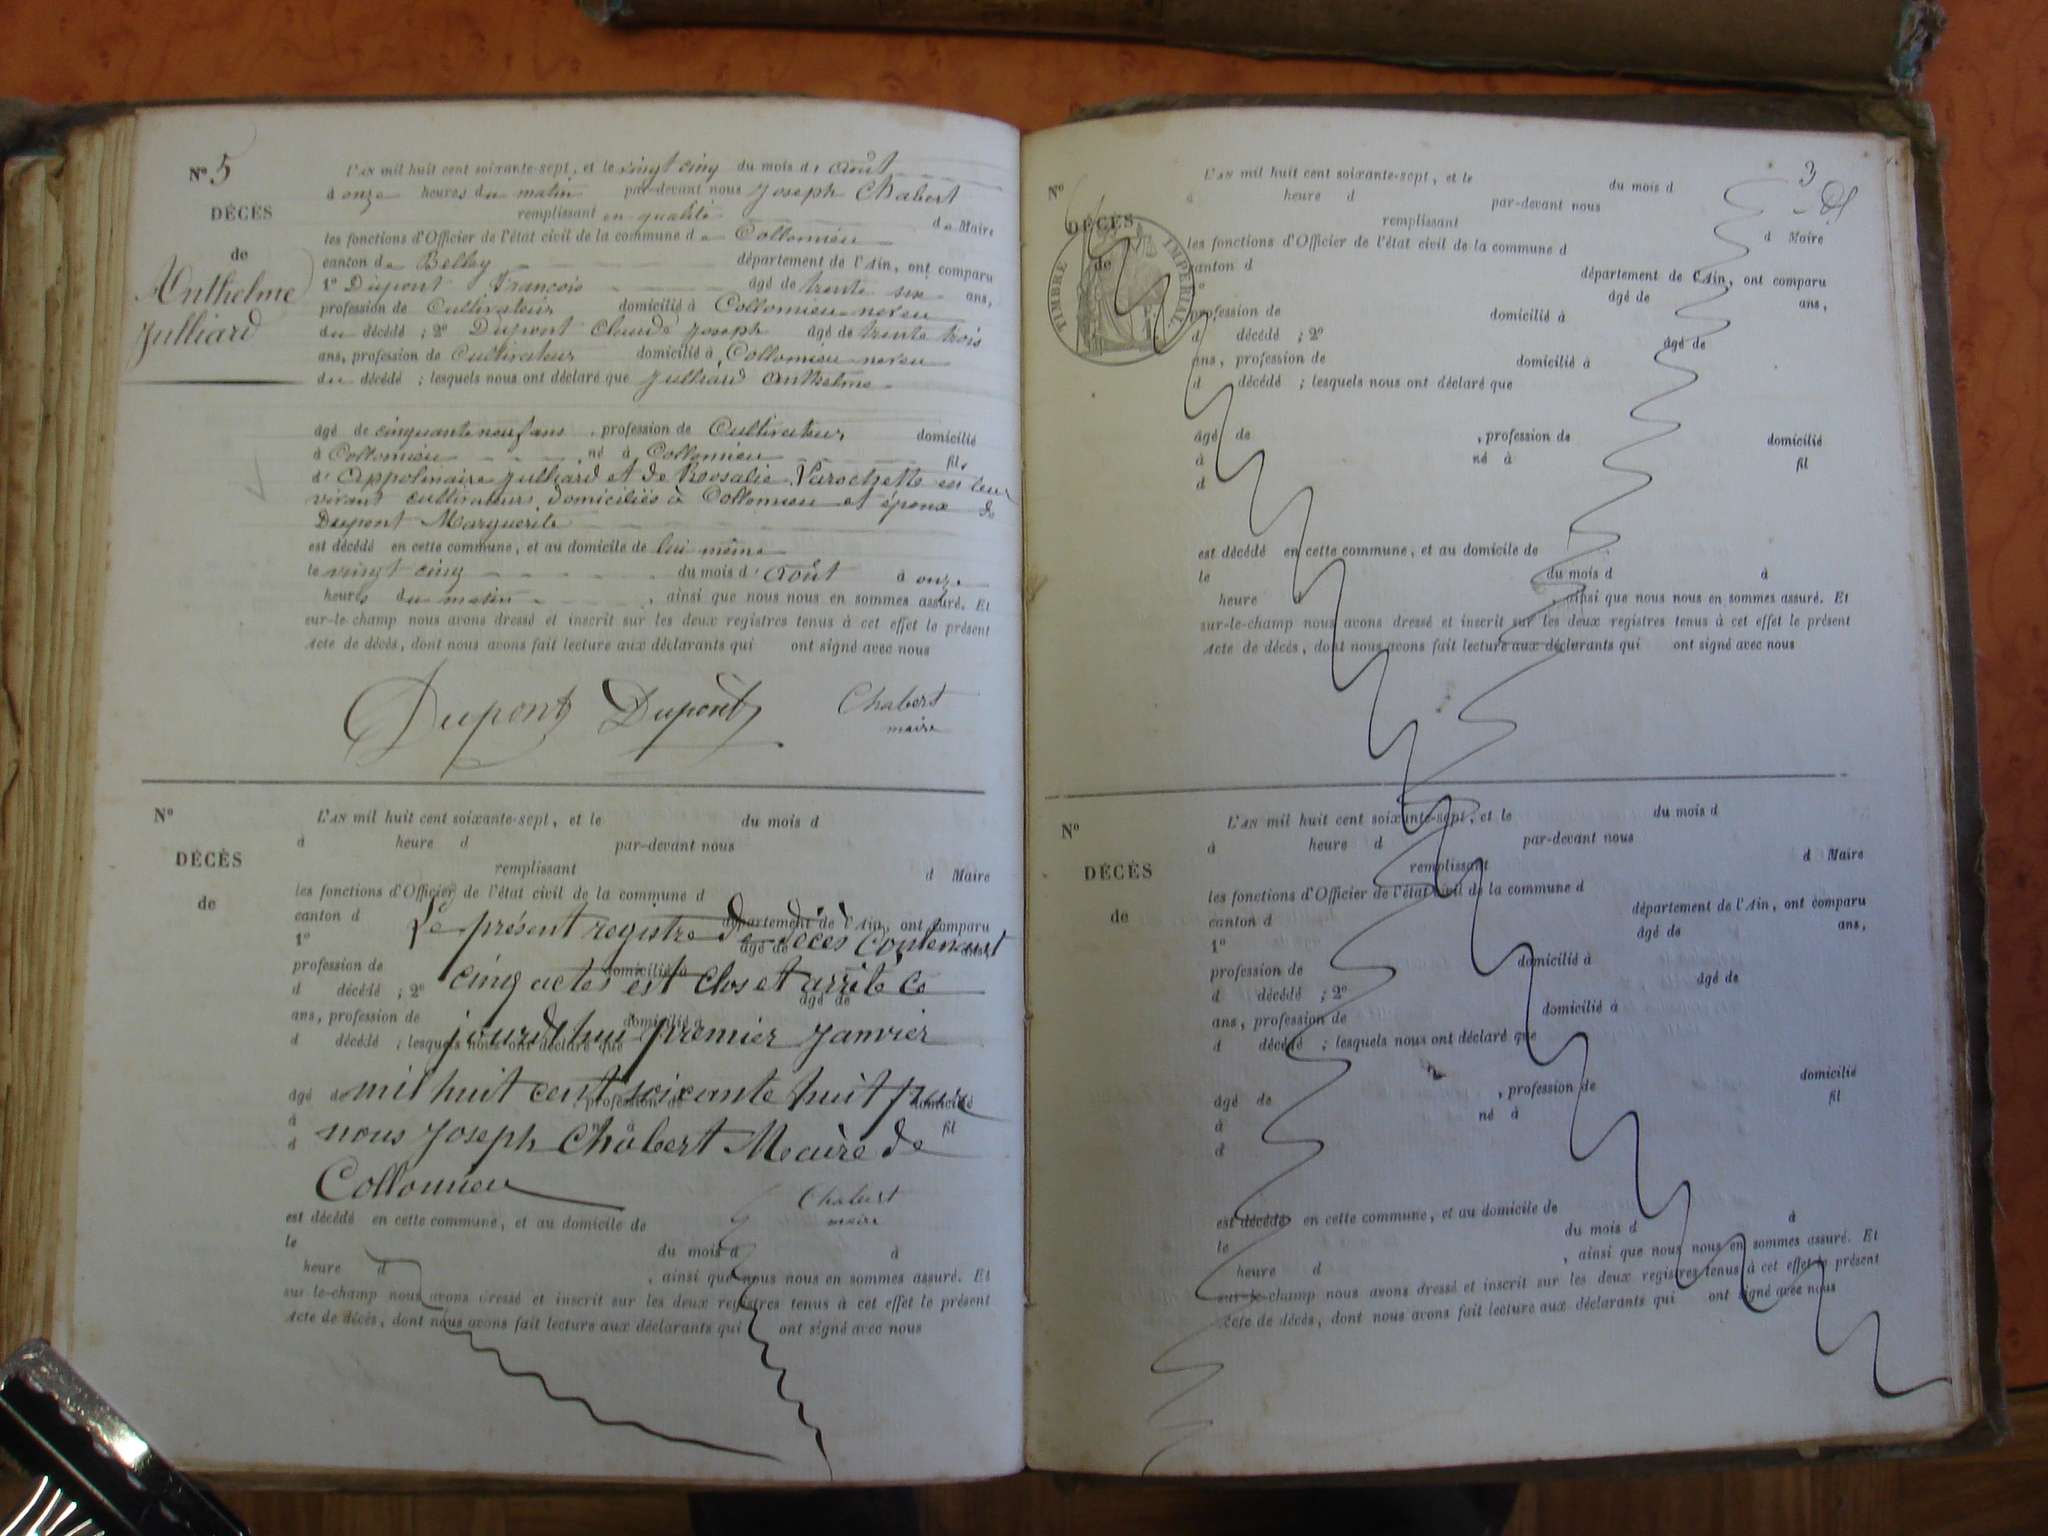 N° 5
DÉCÈS
de
Anthelme
Julliard
L'AN mil huit cent soixante-sept, et le vingt cinq du mois d' août
à onze heures du matin par-devant nous Joseph Chabert
remplissant en qualité de Maire
les fonctions d'Officier de l'état civil de la commune de Collomieu
canton de Belley département de l'Ain, ont comparu
1° Dupont François âgé de trente six ans,
profession de Cultivateur domicilié à Collomieu neveu
du décédé ; 2° Dupont Claude Joseph âgé de trente trois
ans, profession de Cultivateur domicilié à Collomieu neveu
du décédé ; lesquels nous ont déclaré que Julliard Anthelme
âgé de cinquante neuf ans , profession de Cultivateur domicilié
à Collomieu né à Collomieu fils
d' Appolinaire Julliard et de Roosalie en leur
vivant cultivateurs domiciliés à Collomieu et époux de
Dupont Marguerite
est décédé en cette commune, et au domicile de lui même
le vingt cinq du mois d' Août à onze
heures du matin , ainsi que nous nous en sommes assuré. Et
sur-le-champ nous avons dressé et inscrit sur les deux registres tenus à cet effet le présent
Acte de décès, dont nous avons fait lecture aux déclarants qui ont signé avec nous
Dupont Dupont Chabert
maire
N°
DÉCÈS
de
L'AN mil huit cent soixante-sept, et le du mois d
à heure d par-devant nous
remplissant d Maire
les fonctions d'Officier de l'état civil de la commune d
canton d département de l'Ain, ont comparu
1° âgé de ans,
Le présent registre de décès contenant
profession de domicilié à
cinq actes est clos et arrêté ce
d décédé ; 2° âgé de
ans, profession de domicilié à
jourd'hui premier Janvier
d décédé ; lesquels nous ont déclaré que
mil huit cent soixante huit par
âgé de , profession de domicilié
à né à fil
nous Joseph Chabert Maire de
d
Collomieu
Chabert
maire
est décédé en cette commune, et au domicile de
le du mois d à
heure d , ainsi que nous nous en sommes assuré. Et
sur-le-champ nous avons dressé et inscrit sur les deux registres tenus à cet effet le présent
Acte de décès, dont nous avons fait lecture aux déclarants qui ont signé avec nous
3
N°
DÉCÈS
de
TIMBRE IMPÉRIAL
L'AN mil huit cent soixante-sept, et le du mois d
à heure d par-devant nous
remplissant d Maire
les fonctions d'Officier de l'état civil de la commune d
canton d département de l'Ain, ont comparu
1° âgé de ans,
profession de domicilié à
d décédé ; 2° âgé de
ans, profession de domicilié à
d décédé ; lesquels nous ont déclaré que
âgé de , profession de domicilié
à né à fil
d
est décédé en cette commune, et au domicile de
le du mois d à
heure d , ainsi que nous nous en sommes assuré. Et
sur-le-champ nous avons dressé et inscrit sur les deux registres tenus à cet effet le présent
Acte de décès, dont nous avons fait lecture aux déclarants qui ont signé avec nous
N°
DÉCÈS
de
L'AN mil huit cent soixante-sept, et le du mois d
à heure d par-devant nous
remplissant d Maire
les fonctions d'Officier de l'état civil de la commune d
canton d département de l'Ain, ont comparu
1° âgé de ans,
profession de domicilié à
d décédé ; 2° âgé de
ans, profession de domicilié à
d décédé ; lesquels nous ont déclaré que
âgé de , profession de domicilié
à né à fil
d
est décédé en cette commune, et au domicile de
le du mois d à
heure d , ainsi que nous nous en sommes assuré. Et
sur-le-champ nous avons dressé et inscrit sur les deux registres tenus à cet effet le présent
Acte de décès, dont nous avons fait lecture aux déclarants qui ont signé avec nous